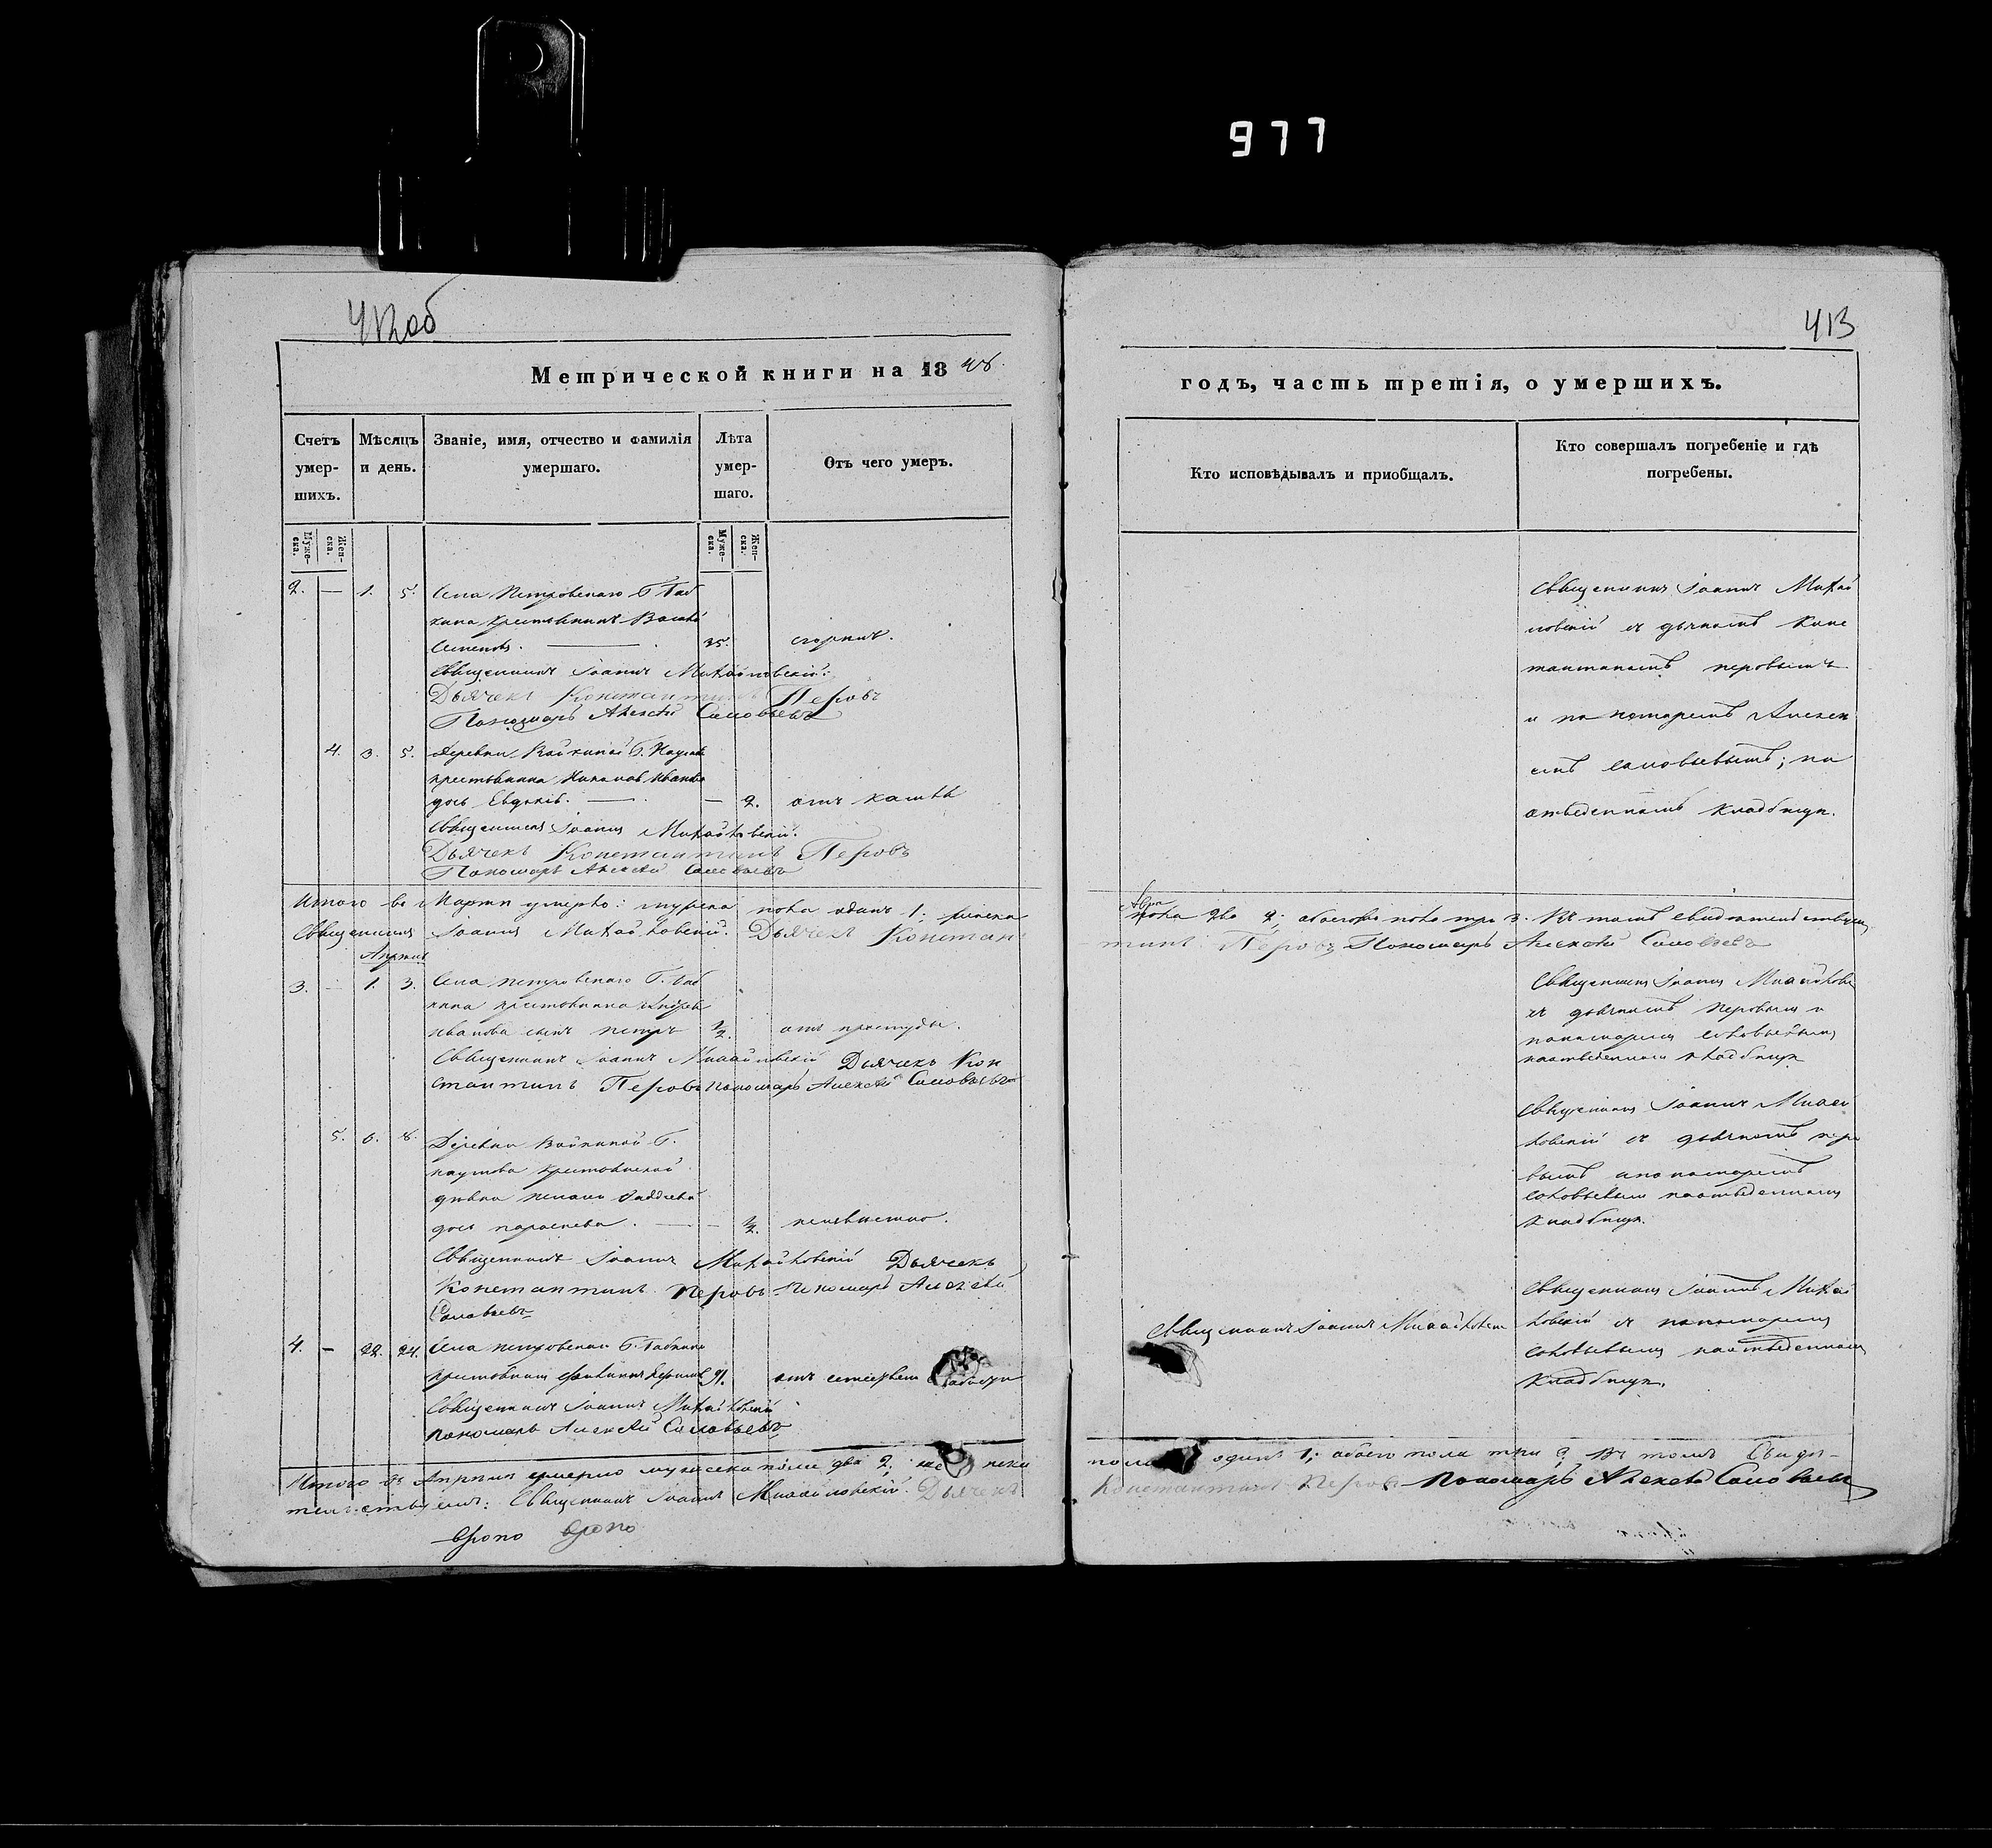 977
412об
413
Метрической книги на 1848
годъ, часть третія, о умершихъ.
Счетъ умер-шихъ.
Мѣсяцъ и день.
Званіе, имя, отчество и фамилія умершаго.
Лѣта умер-шаго.
Отъ чего умеръ.
Кто исповѣдывалъ и приобщалъ.
Кто совершалъ погребеніе и гдѣ погребены.
Муже-ска.
Жен-ска.
Муже-ска.
Жен-ска.
2. — 1. 5. Села Петровскаго Г. Баб
кина крестьянинъ
Семеновъ. — 35. сгорѣлъ.
Священникъ Іоаннъ Михайловскій.
Дьячекъ Константинъ Перовъ
Пономарь Алексѣй Соловьевъ
4. 3. 5. Деревни Г. Наумова
крестьянина Иванова
дочь Евдокія. — — 2. отъ кашля
Священникъ Іоаннъ Михайловскій.
Дьячекъ Константинъ Перовъ
Пономарь Алексѣй Соловьевъ
Священникъ Іоаннъ Михай
ловскій съ дьячкомъ Конс
тантиномъ Перовымъ
и пономаремъ Алексѣ
емъ Соловьевымъ; на
отведенномъ кладбищѣ.
Итого въ Мартѣ умерло: мужеска пола одинъ 1; женска
пола два 2; обоего пола три 3. Въ томъ свидѣтельствуемъ
Священникъ Іоаннъ Михайловскій. Дьячекъ Констан
тинъ Перовъ Пономарь Алексѣй Соловьевъ
Апрѣль
3. — 1. 3. Села Петровскаго Г. Баб
кина крестьянина Андрея
Иванова сынъ Петръ ½. отъ простуды.
Священникъ Іоаннъ Михайловскій Дьячекъ Кон
стантинъ Перовъ Пономарь Алексѣй Соловьевъ
Священникъ Іоаннъ Михайловс
съ дьячкомъ Перовымъ и
пономаремъ Соловьевымъ
на отведенномъ кладбищѣ
5. 6. 8. Деревни Г.
Наумова крестьянской
дѣвки
дочь Параскева. — — ½. неизвѣстно.
Священникъ Іоаннъ Михайловскій Дьячекъ
Константинъ Перовъ Пономарь Алексѣй
Соловьевъ
Священникъ Іоаннъ Михай
ловскій съ дьячкомъ Перо
вымъ и пономаремъ
Соловьевымъ на отведенномъ
кладбищѣ.
4. — 22. 24. Села Петровскаго Г. Бабкина
крестьянинъ 91. отъ слабости
Священникъ Іоаннъ Михайловскій
Пономарь Алексѣй Соловьевъ
Священникъ Іоаннъ Михайловскій
Священникъ Іоаннъ Михай
ловскій съ пономаремъ
Соловьевымъ на отведенномъ
кладбищѣ.
Итого въ Апрѣлѣ умерло мужеска пола два 2; женска
пола одинъ 1; обоего пола три 3 въ томъ свидѣ-
тельствуемъ: Священникъ Іоаннъ Михайловскій. Дьячекъ
Константинъ Перовъ Пономарь Алексѣй Соловьевъ